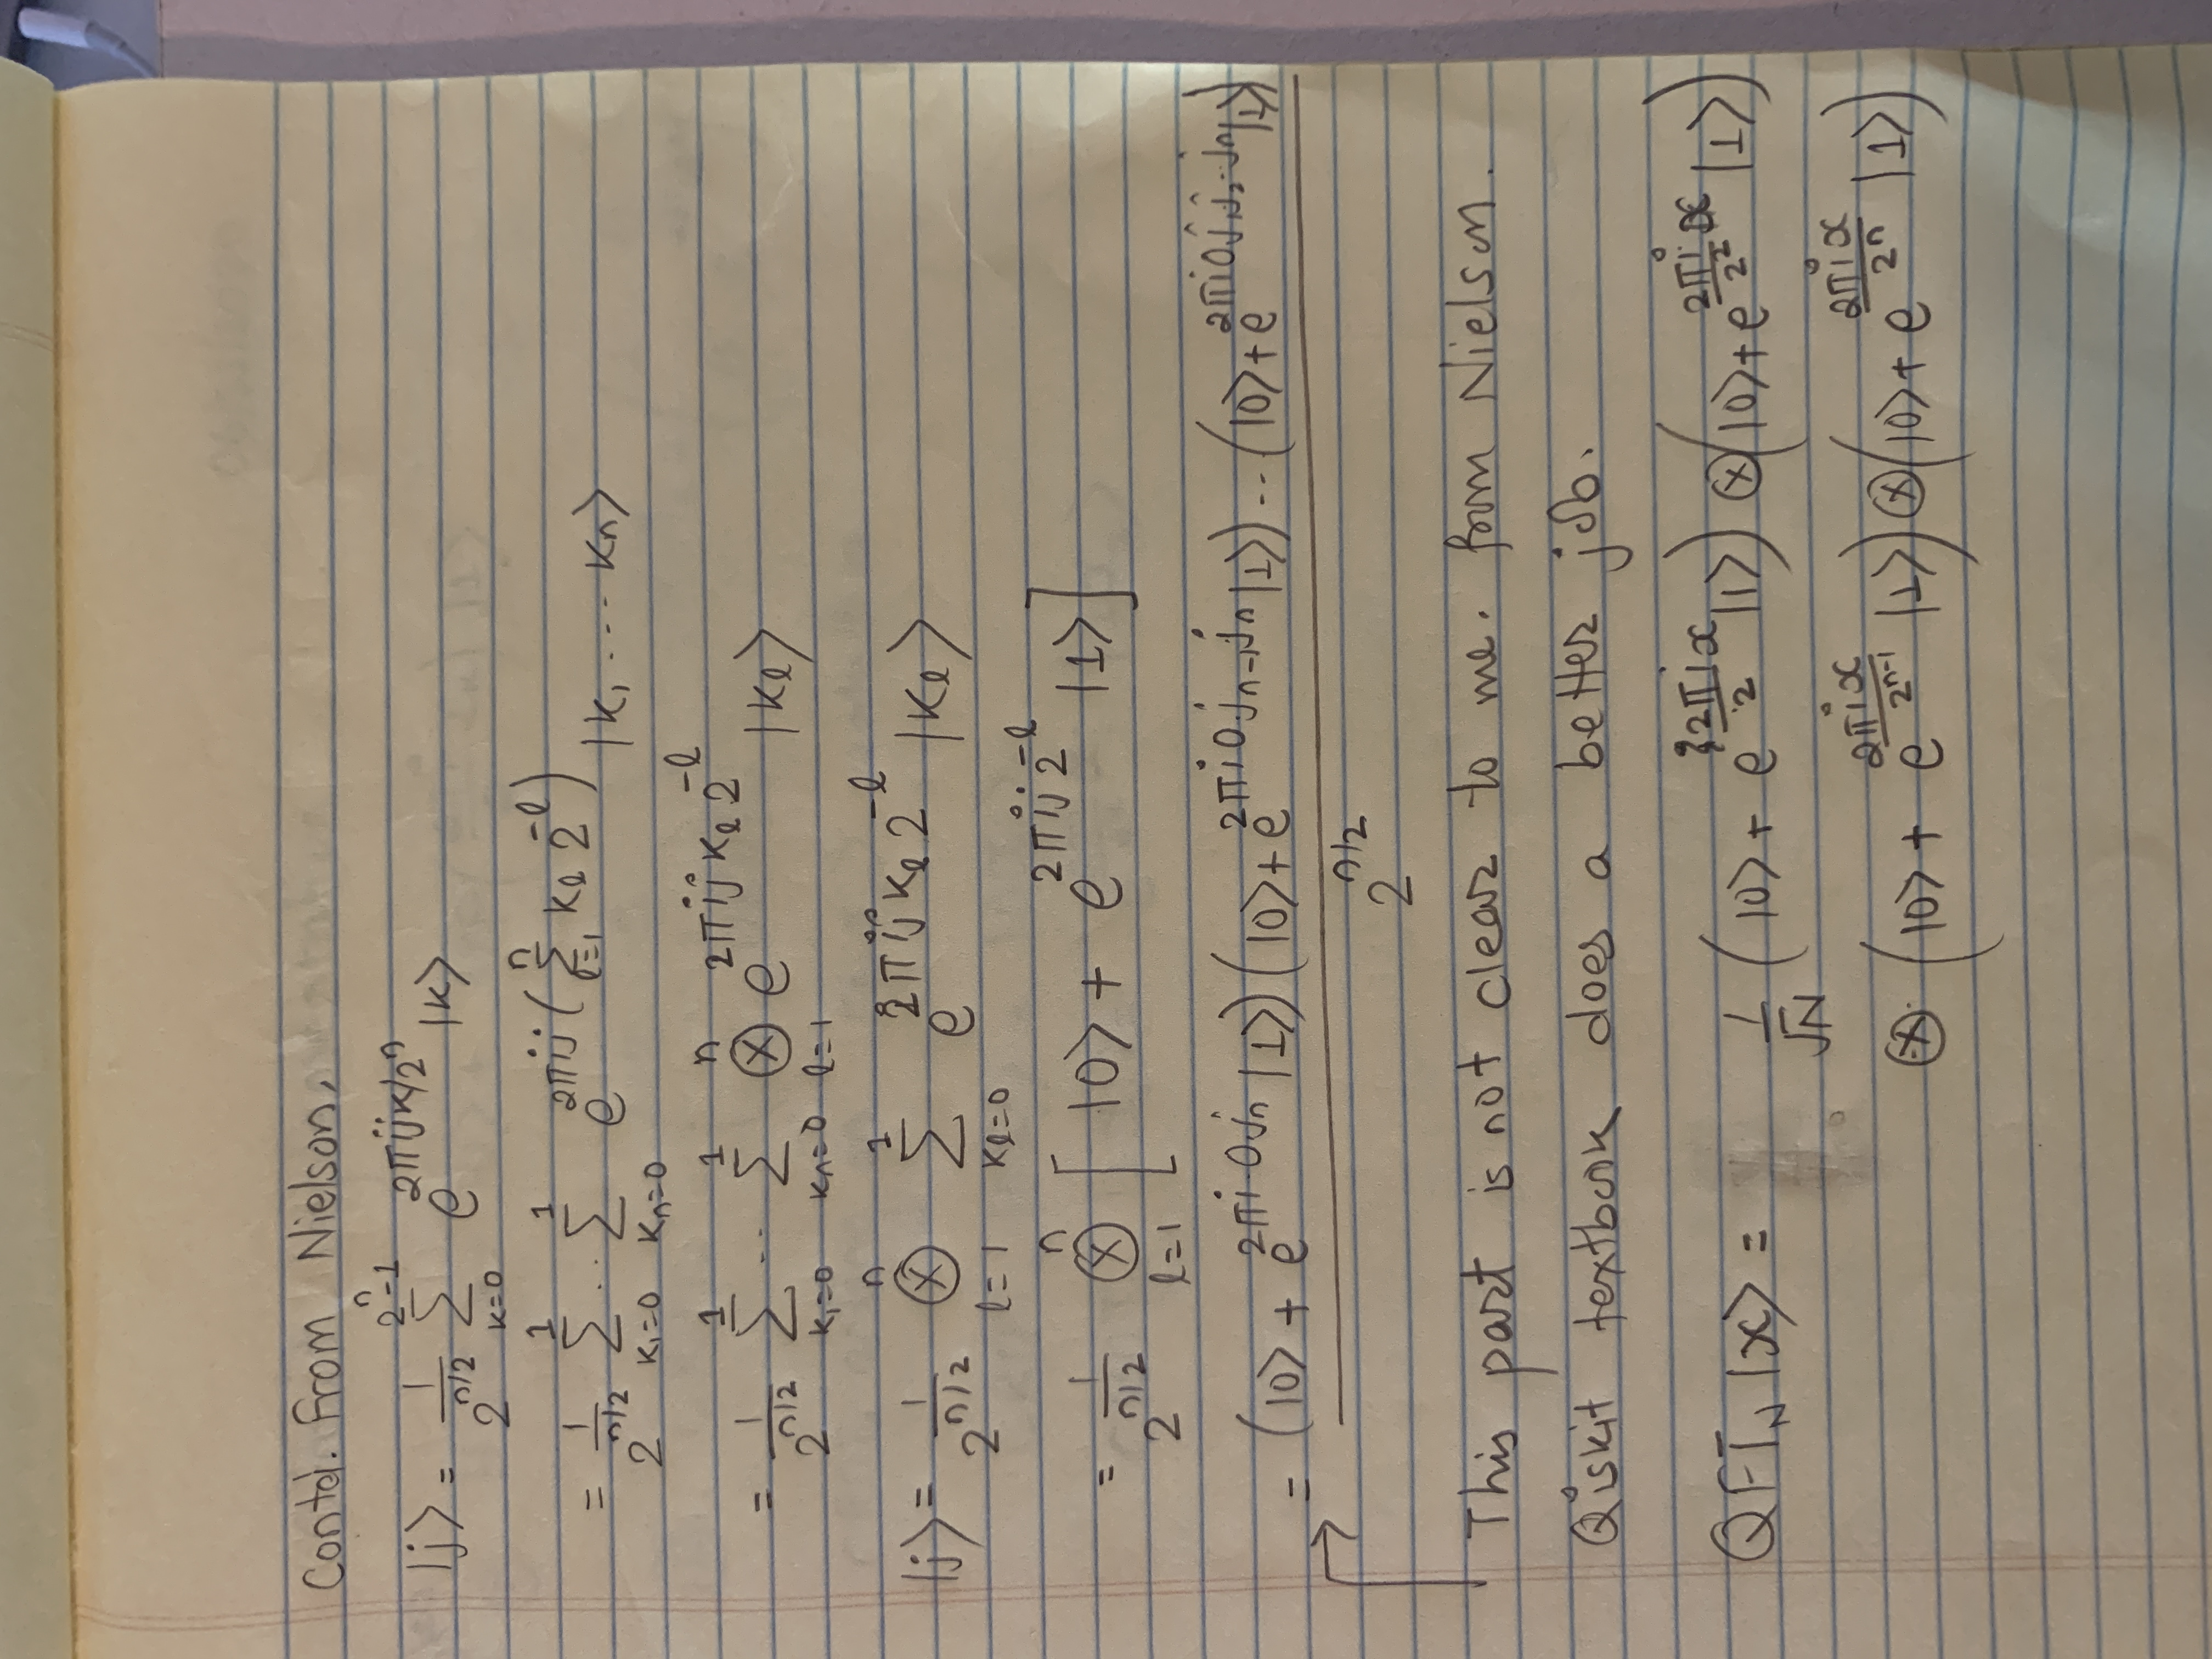 Contd. From Nielson,
|j⟩ = 1/2^{n/2} ∑_{k=0}^{2^n-1} e^{2πijk/2^n} |k⟩
= 1/2^{n/2} ∑_{k₁=0}^{1} .. ∑_{kₙ=0}^{1} e^{2πij(∑_{l=1}^{n} k_l 2^{-l})} |k₁ ... kₙ⟩
= 1/2^{n/2} ∑_{k₁=0}^{1} .. ∑_{kₙ=0}^{1} ⊗_{l=1}^{n} e^{2πijk_l 2^{-l}} |k_l⟩
|j⟩ = 1/2^{n/2} ⊗_{l=1}^{n} ∑_{k_l=0}^{1} e^{2πijk_l 2^{-l}} |k_l⟩
= 1/2^{n/2} ⊗_{l=1}^{n} [ |0⟩ + e^{2πij2^{-l}} |1⟩ ]
= (|0⟩ + e^{2πi·0jₙ} |1⟩)(|0⟩ + e^{2πi0.j_{n-1}jₙ} |1⟩) .. (|0⟩ + e^{2πi0j₁j₂..jₙ} |1⟩) / 2^{n/2}
This part is not clear to me. from Nielson.
Qiskit textbook does a better job.
QFT_N |x⟩ = 1/√N (|0⟩ + e^{2πix/2} |1⟩) ⊗ (|0⟩ + e^{2πix/2²} |1⟩)
⊗ (|0⟩ + e^{2πix/2^{n-1}} |1⟩) ⊗ (|0⟩ + e^{2πix/2^n} |1⟩)